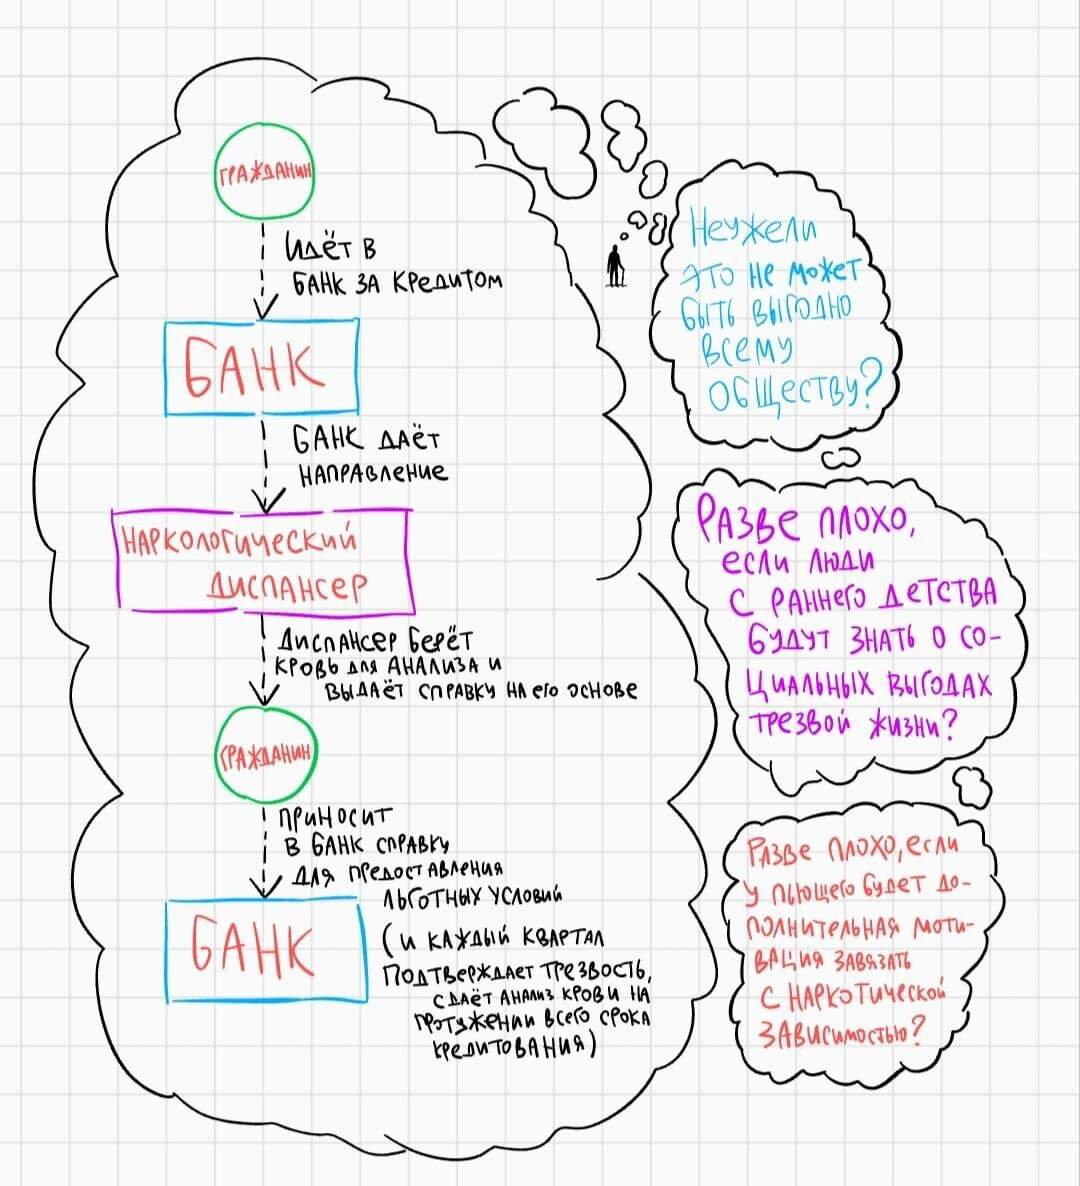 ГРАЖДАНИН
ИДЁТ В
БАНК ЗА КРЕДИТОМ
БАНК
БАНК ДАЁТ
НАПРАВЛЕНИЕ
НАРКОЛОГИЧЕСКИЙ
ДИСПАНСЕР
ДИСПАНСЕР БЕРЁТ
КРОВЬ ДЛЯ АНАЛИЗА И
ВЫДАЁТ СПРАВКУ НА ЕГО ОСНОВЕ
ГРАЖДАНИН
ПРИНОСИТ
В БАНК СПРАВКУ
ДЛЯ ПРЕДОСТАВЛЕНИЯ
ЛЬГОТНЫХ УСЛОВИЙ
БАНК
(И КАЖДЫЙ КВАРТАЛ
ПОДТВЕРЖДАЕТ ТРЕЗВОСТЬ,
СДАЁТ АНАЛИЗ КРОВИ НА
ПРОТЯЖЕНИИ ВСЕГО СРОКА
КРЕДИТОВАНИЯ)
НЕУЖЕЛИ
ЭТО НЕ МОЖЕТ
БЫТЬ ВЫГОДНО
ВСЕМУ
ОБЩЕСТВУ?
РАЗВЕ ПЛОХО,
ЕСЛИ ЛЮДИ
С РАННЕГО ДЕТСТВА
БУДУТ ЗНАТЬ О СО-
ЦИАЛЬНЫХ ВЫГОДАХ
ТРЕЗВОЙ ЖИЗНИ?
РАЗВЕ ПЛОХО, ЕСЛИ
У ПЬЮЩЕГО БУДЕТ ДО-
ПОЛНИТЕЛЬНАЯ МОТИ-
ВАЦИЯ ЗАВЯЗАТЬ
С НАРКОТИЧЕСКОЙ
ЗАВИСИМОСТЬЮ?